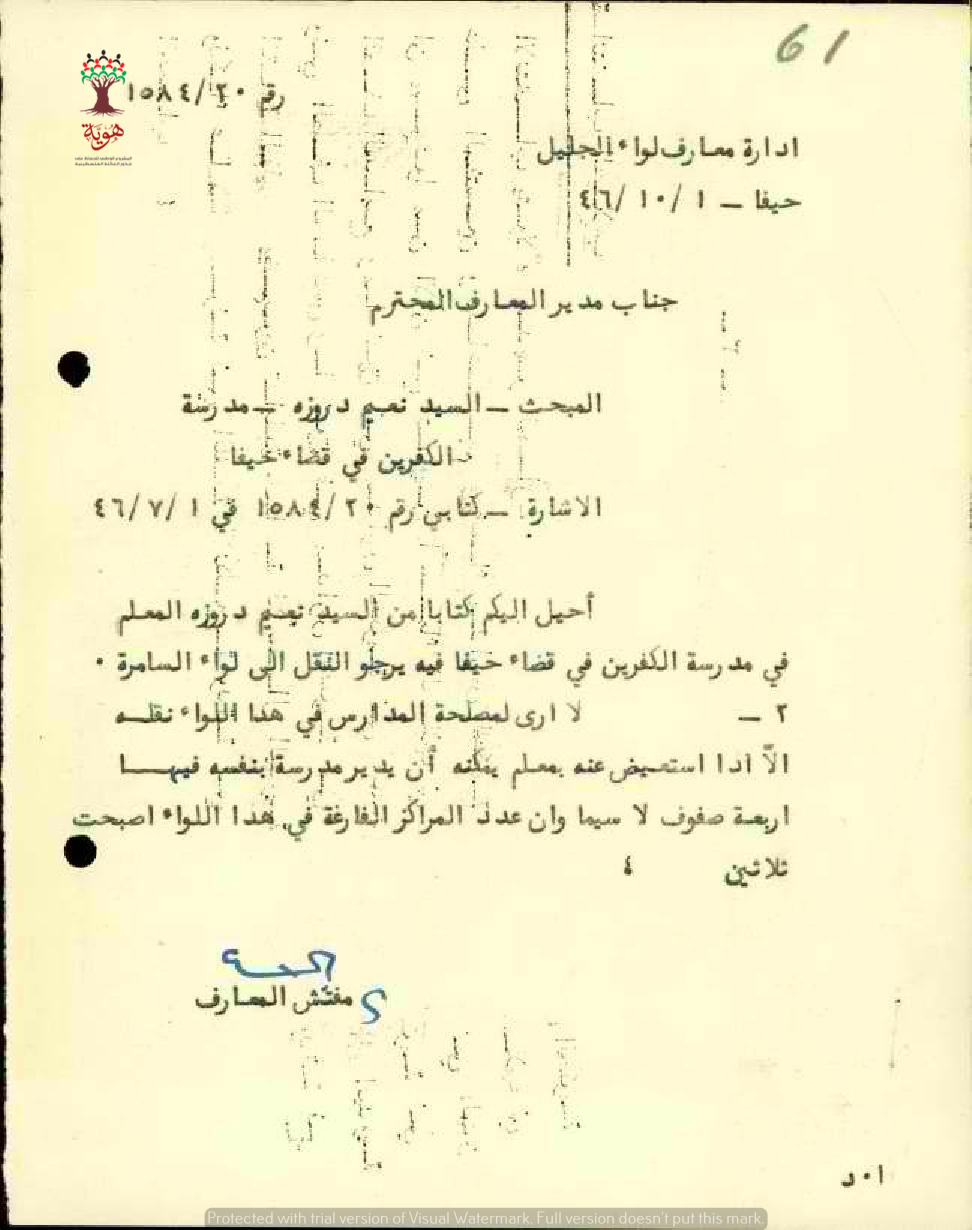 61
رقم ١٥٨٤/٢٠
هوية
ادارة معارف لواء الجليل
حيفا – ١ /١٠ /٤٦
جناب مدير المعارف المحترم
المبحث – السيد نعيم دروزه – مدرسة
الكفرين في قضاء حيفا
الاشارة – كتابي رقم ١٥٨٤/٢٠ في ١ /٧ /٤٦
أحيل اليكم كتابا من السيد نعيم دروزه المعلم
في مدرسة الكفرين في قضاء حيفا فيه يرجو النقل الى لواء السامرة ٠
٢ – لا ارى لمصلحة المدارس في هذا اللواء نقلـه
الاّ اذا استعيض عنه بمعلم يمكنه أن يدير مدرسة بنفسه فيهـا
اربعة صفوف لا سيما وان عدد المراكز الفارغة في هذا اللواء اصبحت
ثلاثين ٤
مفتش المعارف
ا٠د
Protected with trial version of Visual Watermark. Full version doesn't put this mark.